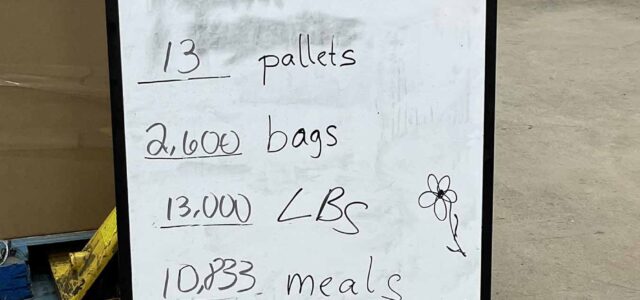 13 pallets
2,600 bags
13,000 LBS
10,833 meals